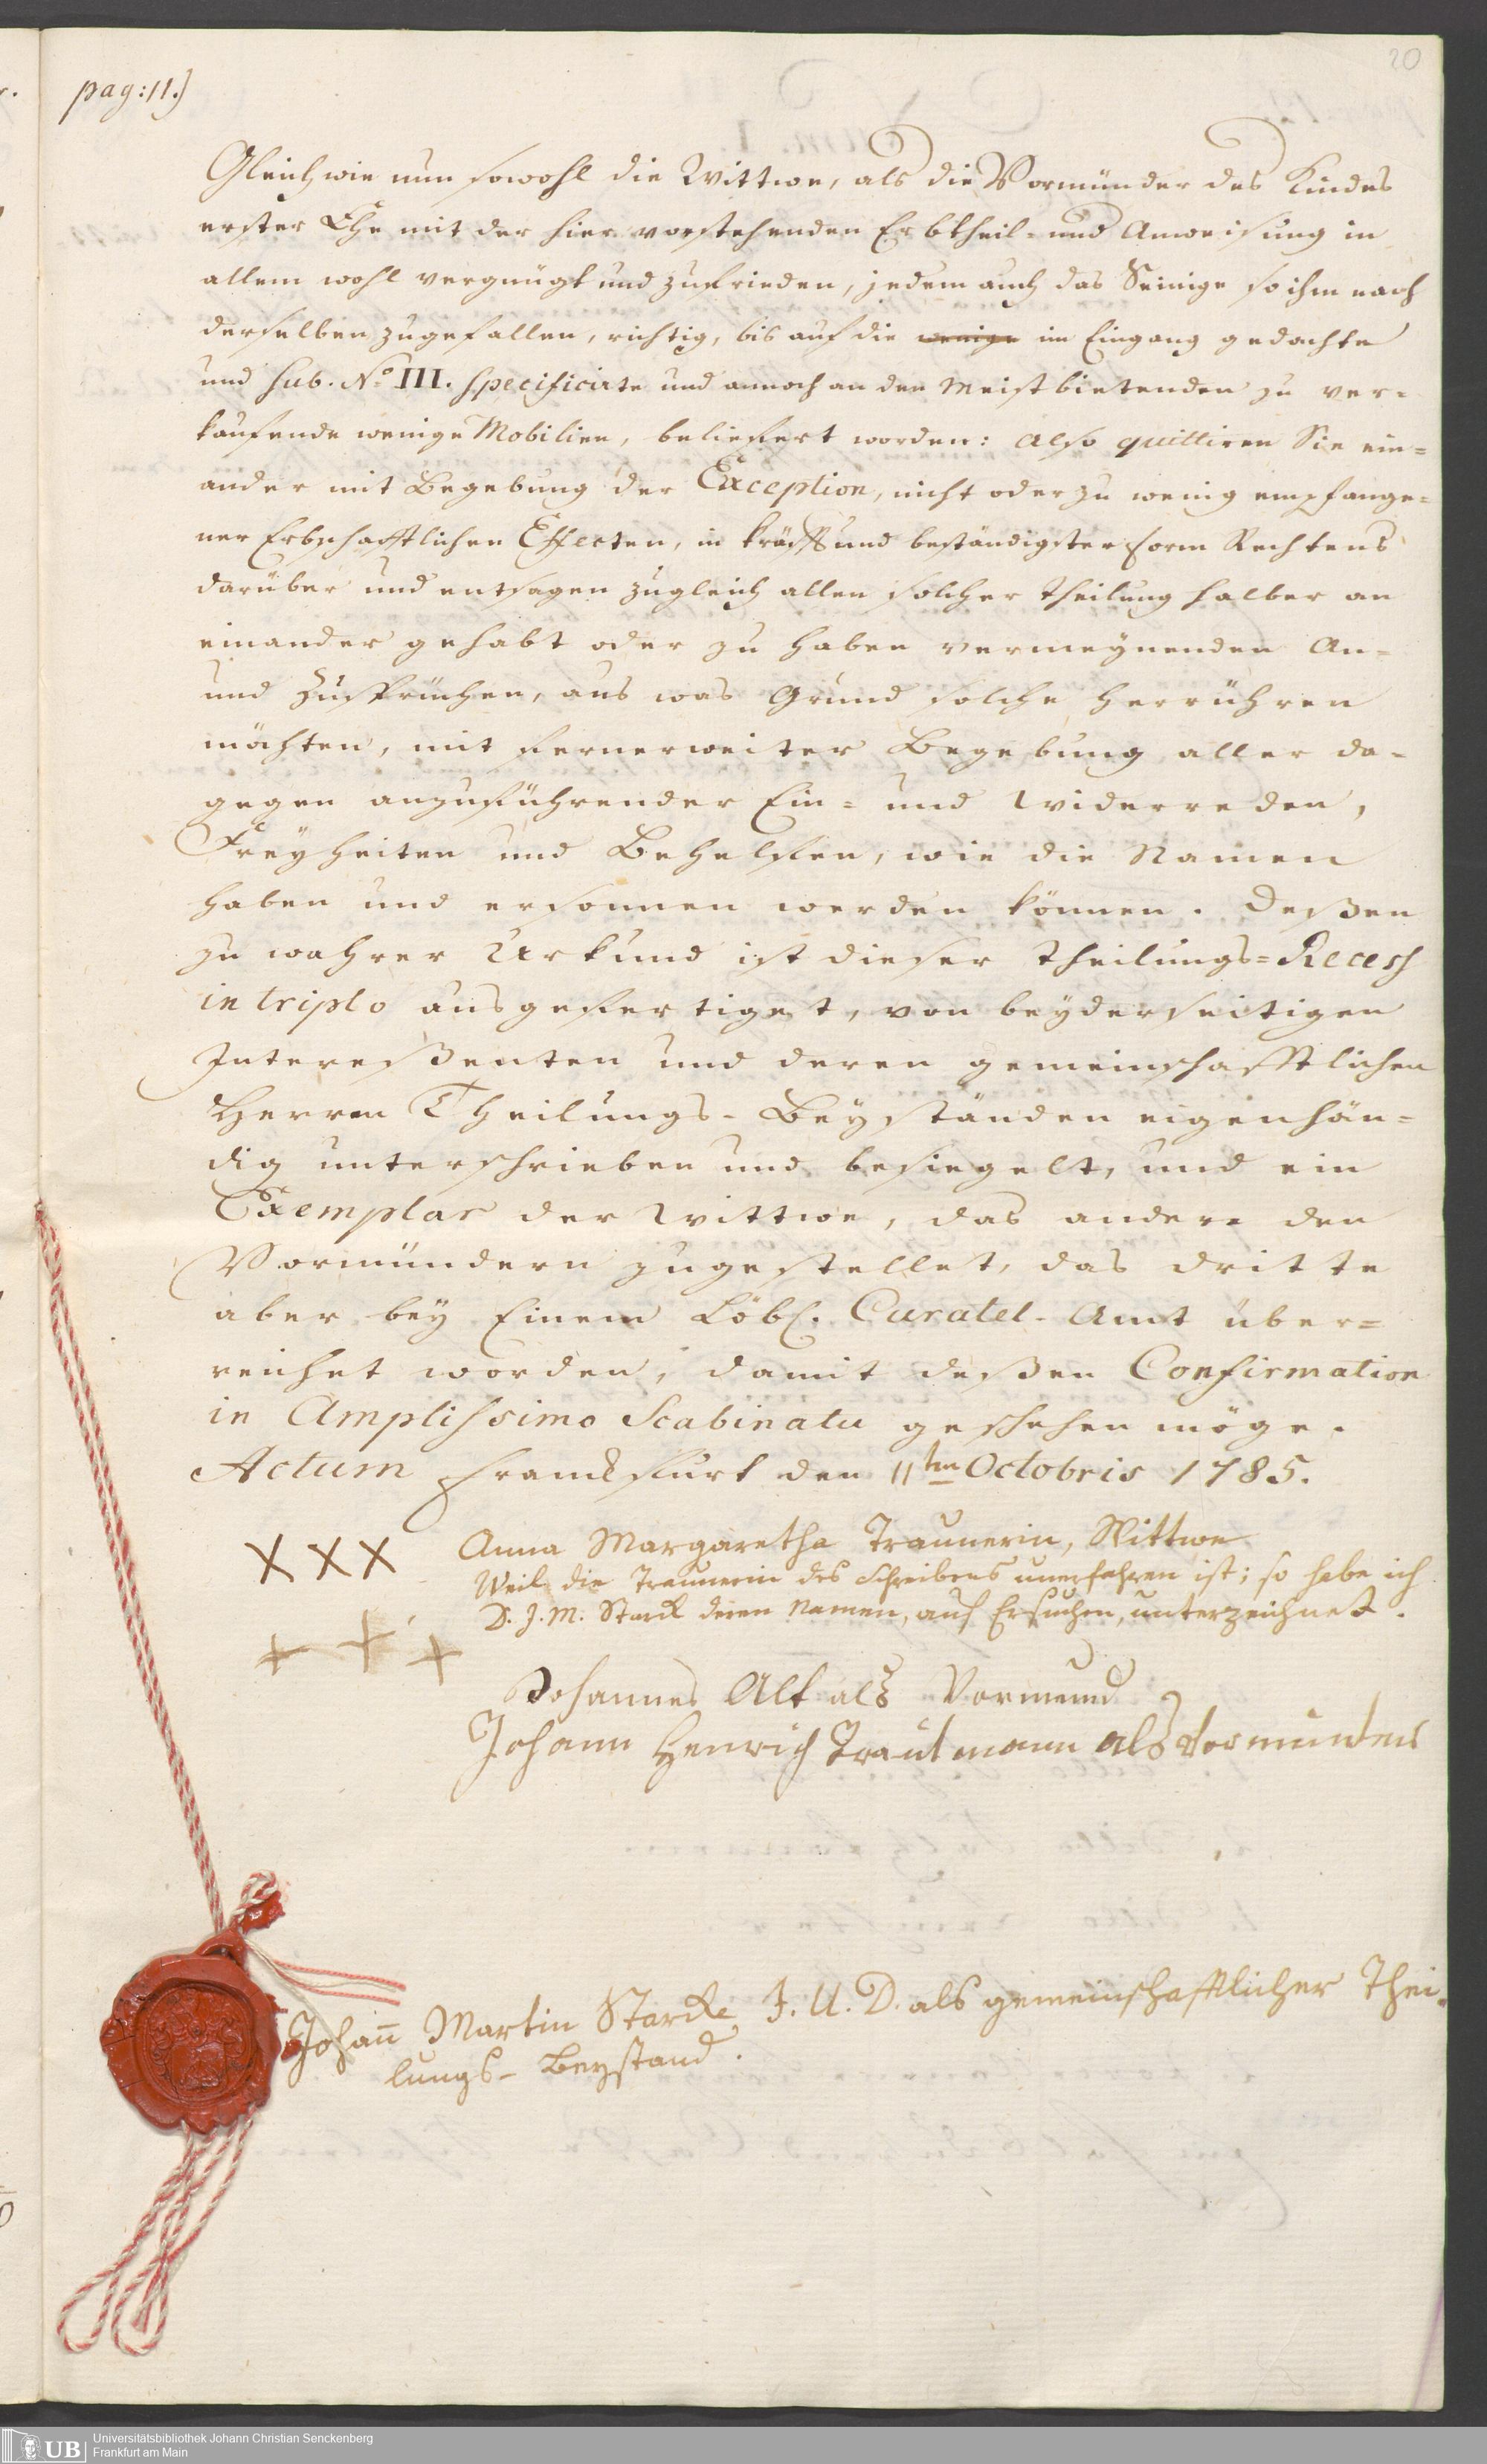 20
pag: 11.)
Gleichwie nun sowohl die Wittwe, als die Vormünder des Kindes
erster Ehe mit der hier vorstehenden Erbtheil- und Anweisung in
allem wohl vergnügt und zufrieden, jedem auch das Seinige so ihm nach
derselben zugefallen, richtig, bis auf die wenige im Eingang gedachte
und sub. No III. specificirte und annoch an den Meistbietenden zu ver=
kaufende wenige Mobilien, beliefert worden: also quittiren Sie ein=
ander mit Begebung der Exception, nicht oder zu wenig empfange=
ner Erbschafftlichen Effecten, in kräfft und beständigster form Rechtens
darüber und entsagen zugleich allen solcher theilung halber an
einander gehabt oder zu haben vermeynenden An=
und Zusprüchen, aus was Grund solche herrühren
möchten, mit fernerweiter Begebung aller da=
gegen anzuführender Ein= und Widerreden,
Freyheiten und Behelfen, wie die Namen
haben und ersonnen werden können. Deßen
zu wahrer Urkund ist dieser theilungs=Recess
in triplo ausgefertiget, von beyderseitigen
Intereßenten und deren gemeinschafftlichen
Herren Theilungs-Beyständen eigenhän=
dig unterschrieben und besiegelt, und ein
Exemplar der Wittwe, das andere den
Vormündern zugestellet, das dritte
aber bey Einem Löbl. Curatel-Amt über=
reichet worden, damit deßen Confirmation
in Amplissimo Scabinatu geschehen möge.
Actum Franckfurt den 11ten Octobris 1785.
XXX Anna Margaretha Traunerin, Wittwe
Weil die Traunerin des Schreibens unerfahren ist; so habe ich
D. J. M. Starck deren Namen, auf Ersuchen, unterzeichnet.
+ + +
Johannes Alt als Vormund
Johann Henrich Trautmann als Vormunder
Johan̄ Martin Starcke J. U. D. als gemeinschafftlicher Thei-
lungs-Beystand.
UB
Universitätsbibliothek Johann Christian Senckenberg
Frankfurt am Main